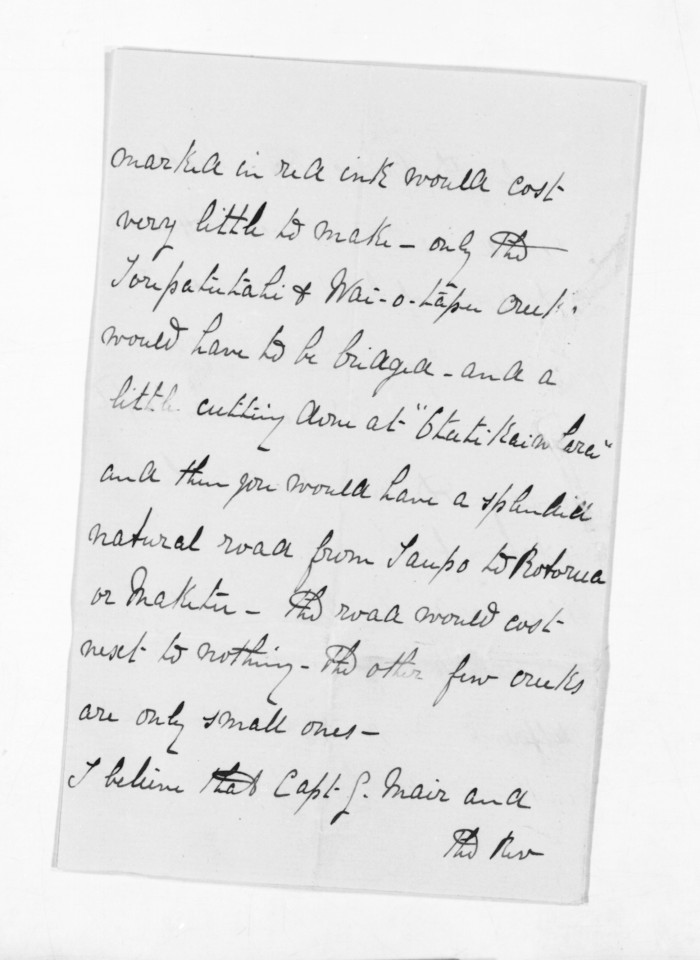 marked in red ink would cost
very little to make - only the
Torepatutahi & Wai-o-tāpu creeks
would have to be bridged - and a
little cutting done at "
and then you would have a splendid
natural road from Taupo to Rotorua
or Maketu - The road would cost
next to nothing - The other few creeks
are only small ones -
I believe that Capt G. Mair and
The Rev